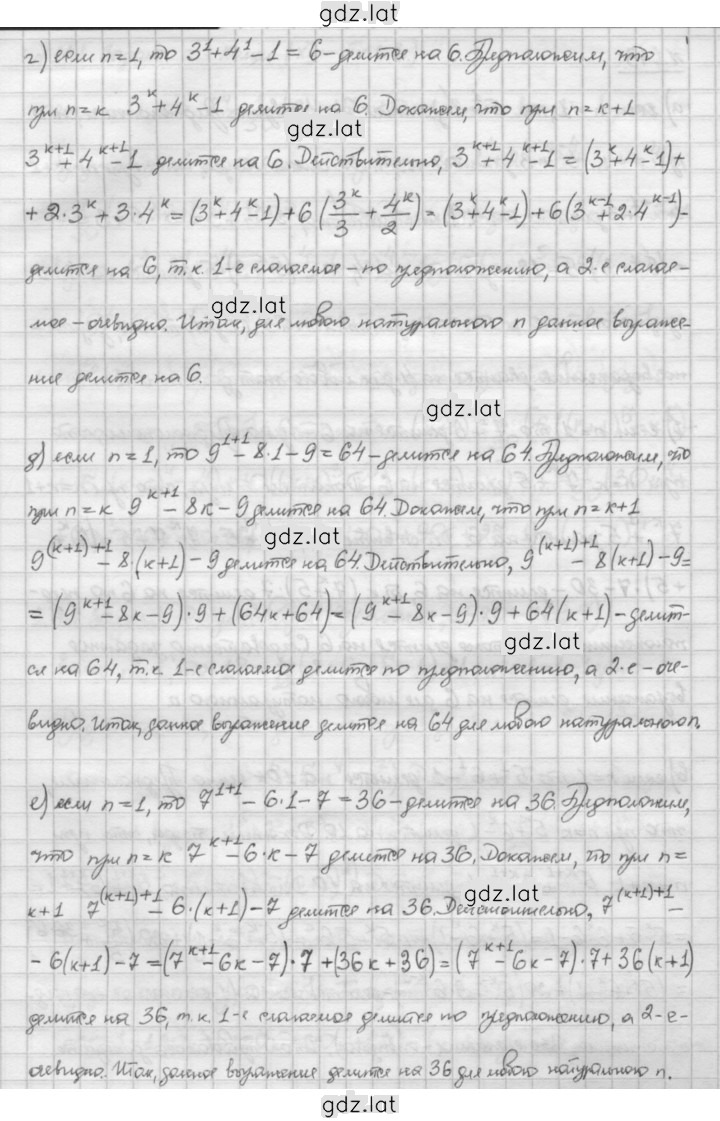 gdz.lat
г) если n=1, то 3^1+4^1-1=6-делится на 6. Предположим, что
при n=к 3^к+4^к-1 делится на 6. Докажем, что при n=к+1
gdz.lat
3^(к+1)+4^(к+1)-1 делится на 6. Действительно, 3^(к+1)+4^(к+1)-1=(3^к+4^к-1)+
+2·3^к+3·4^к=(3^к+4^к-1)+6(3^к/3+4^к/2)=(3^к+4^к-1)+6(3^(к-1)+2·4^(к-1))-
делится на 6, т.к. 1-е слагаемое-по предположению, а 2-е слагае-
gdz.lat
мое-очевидно. Итак, для любого натурального n данное выраже-
ние делится на 6.
gdz.lat
д) если n=1, то 9^(1+1)-8·1-9=64-делится на 64. Предположим, что
при n=к 9^(к+1)-8к-9 делится на 64. Докажем, что при n=к+1
gdz.lat
9^((к+1)+1)-8·(к+1)-9 делится на 64. Действительно, 9^((к+1)+1)-8(к+1)-9=
=(9^(к+1)-8к-9)·9+(64к+64)=(9^(к+1)-8к-9)·9+64(к+1)-делит-
gdz.lat
ся на 64, т.к. 1-е слагаемое делится по предположению, а 2-е-оче-
видно. Итак, данное выражение делится на 64 для любого натурального n.
е) если n=1, то 7^(1+1)-6·1-7=36-делится на 36. Предположим,
что при n=к 7^(к+1)-6·к-7 делится на 36. Докажем, что при n=
gdz.lat
к+1 7^((к+1)+1)-6·(к+1)-7 делится на 36. Действительно, 7^((к+1)+1)-
-6(к+1)-7=(7^(к+1)-6к-7)·7+(36к+36)=(7^(к+1)-6к-7)·7+36(к+1)
делится на 36, т.к. 1-е слагаемое делится по предположению, а 2-е-
очевидно. Итак, данное выражение делится на 36 для любого натурального n.
gdz.lat